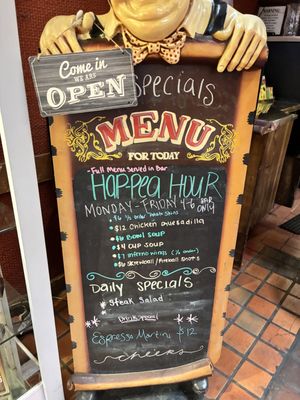 Come in
WE ARE
OPEN
Specials
MENU
FOR TODAY
• Full Menu Served in Bar
Happea Hour
Monday - Friday 4-6 BAR ONLY
• $6 ½ only Potato Skins
• $12 Chicken Quesadilla
• $6 Bowl Soup
• $4 Cup Soup
• $7 Inferno Wings (½ order)
• $6 Screwball / Fireball Shots
Daily Specials
Steak Salad
Drink Special
Espresso Martini $12
cheers
WARNING